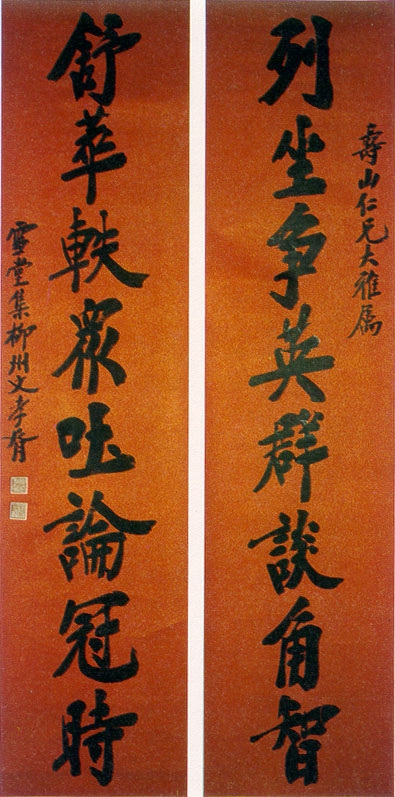 壽山仁兄大雅属
列坐争英群談角智
舒華軼衆吐論冠時
雪堂集柳州文孝胥